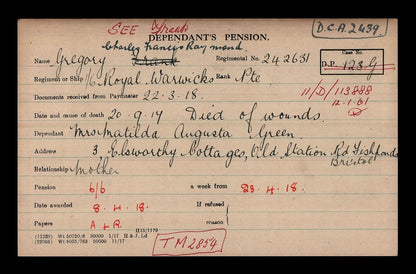 SEE Green
D.C.A 2439.
DEPENDANT'S PENSION.
Charles Francis Raymond.
Name Gregory Frank Regimental No. 242631
Case No.
D.P. 123 G
Regiment or Ship 1/6 Royal Warwicks Rank Pte
11/D/113888
Documents received from Paymaster 22.3.18.
12.1.61
Date and cause of death 20-9-17 Died of wounds.
Dependant Mrs Matilda Augusta Green.
Address 3, Elsworthy Cottages, Old Station Rd Fishponds
Bristol
Relationship Mother
Pension 6/6 a week from 23.4.18.
Date awarded 8.4.18. If refused
Papers A & R. reason
H15/1179
(11239) Wt 50720/6 50000 1/17 H & J, Ld
TM2854.